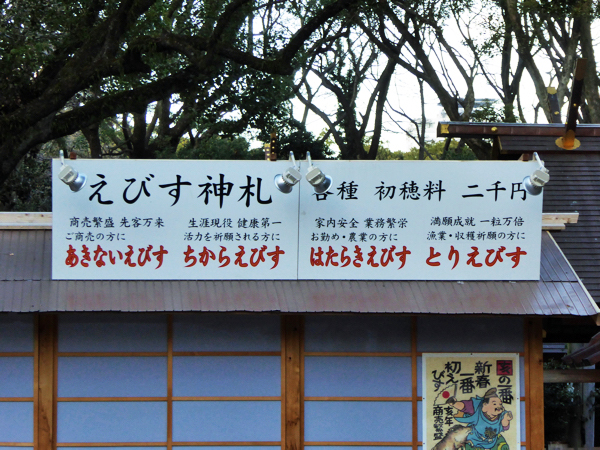 えびす神札
各種 初穂料 二千円
商売繁盛 先客万来
ご商売の方に
あきないえびす
生涯現役 健康第一
活力を祈願される方に
ちからえびす
家内安全 業務繁栄
お勤め・農業の方に
はたらきえびす
満願成就 一粒万倍
漁業・収穫祈願の方に
とりえびす
亥の一番
新春一番
初えびす
亥年
商売繁盛